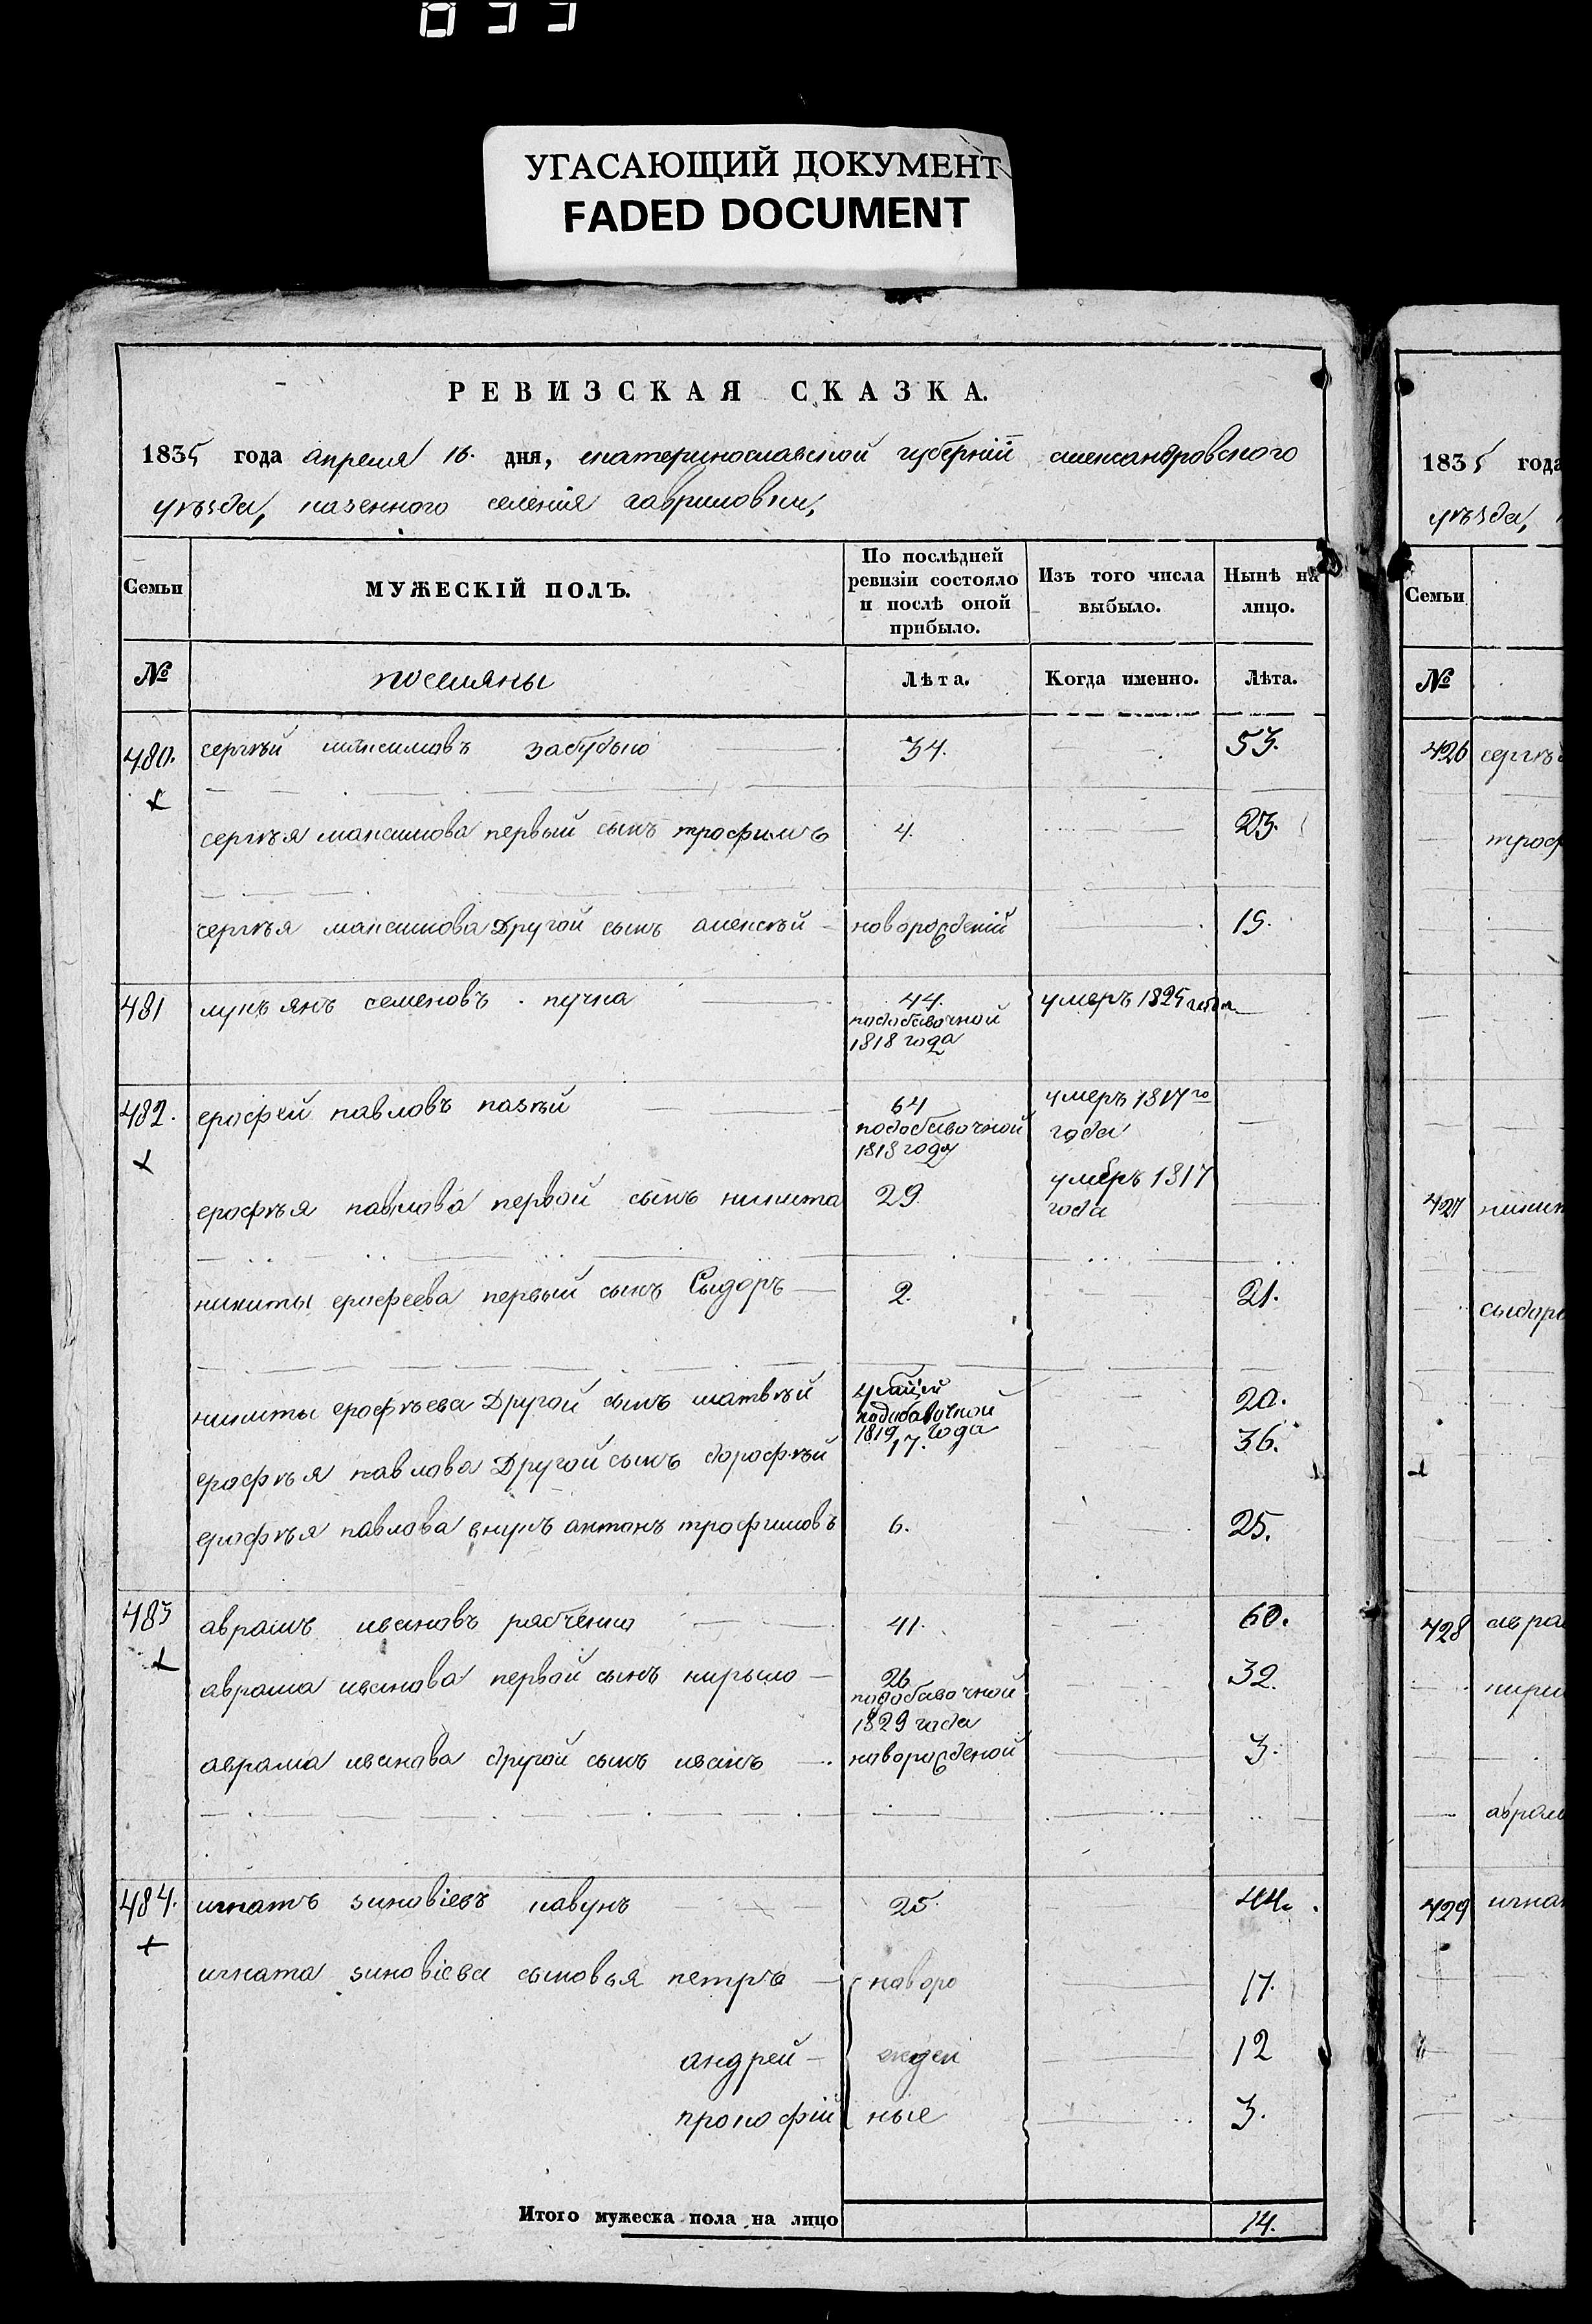 УГАСАЮЩИЙ ДОКУМЕНТ
FADED DOCUMENT
РЕВИЗСКАЯ СКАЗКА.
1835 года апреля 16. дня, екатеринославской губерніи александровского
уѣзда, казенного селенія гавриловки,
Семьи
МУЖЕСКІЙ ПОЛЪ.
По послѣдней ревизіи состояло и послѣ оной прибыло.
Изъ того числа выбыло.
Нынѣ на лицо.
№ поселяны Лѣта. Когда именно. Лѣта.
480. сергѣй максимовъ забудько 34. 53.
сергѣя максимова первый сынъ трофимъ 4. 23.
сергѣя максимова Другой сынъ алексѣй новорожденій 15.
481 лукъянъ семеновъ пучка 44. умеръ 1825 года
подобавочной
1818 года
482. ерофей павловъ 64 умеръ 1817го
подобавочной года
1818 года
ерофѣя павлова первой сынъ никита 29. умеръ 1817
года
никиты ерофеева первый сынъ Сыдоръ 2. 21.
никиты ерофѣева Другой сынъ матвѣй 20.
подобавочной
1819 года
ерофѣя павлова Другой сынъ дорофѣй 17. 36.
ерофѣя павлова внукъ антонъ трофимовъ 6. 25.
483 аврамъ ивановъ рябченко 41. 60.
аврама иванова первой сынъ кирыло 26 32.
подобавочной
1829 года
аврама иванова другой сынъ иванъ новорожденой 3.
484. игнатъ зиновіевъ кавунъ 25. 44.
игната зиновіева сыновья петръ новоро 17.
андрей жден 12
прокофій ные 3.
Итого мужеска пола на лицо 14.
1835 года
уѣзда,
Семьи
№
426
427
428
429